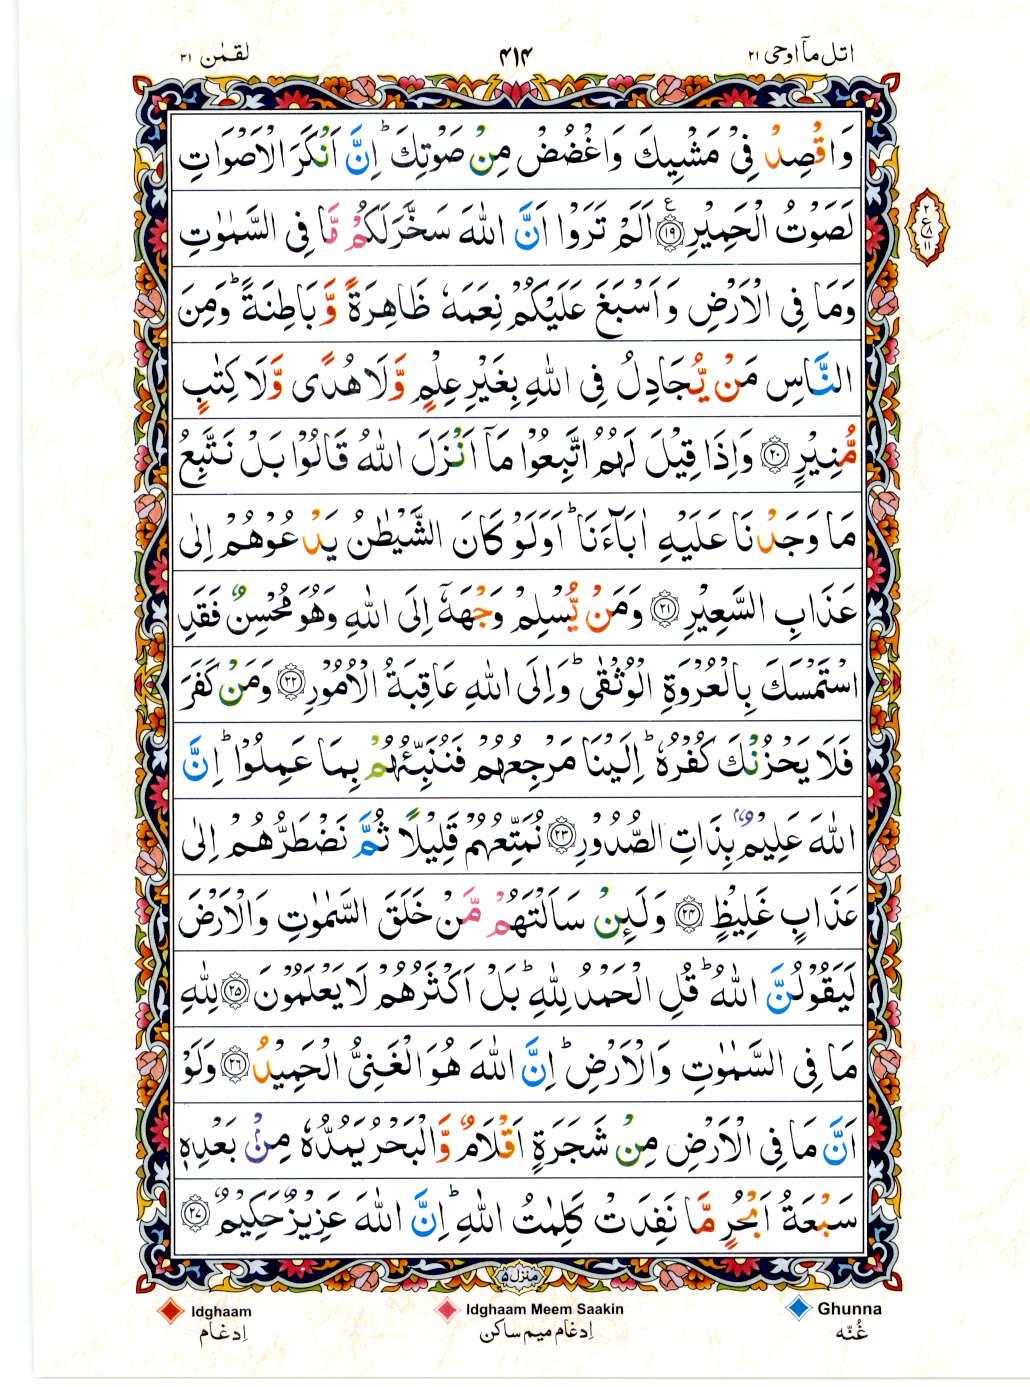 اتل مآ اوحی ۲۱
۴۱۴
لقمٰن ۳۱
وَاقْصِدْ فِيْ مَشْيِكَ وَاغْضُضْ مِنْ صَوْتِكَ ؕ اِنَّ اَنْكَرَ الْاَصْوَاتِ
لَصَوْتُ الْحَمِيْرِ ۝۱۹ ع اَلَمْ تَرَوْا اَنَّ اللّٰهَ سَخَّرَ لَكُمْ مَّا فِى السَّمٰوٰتِ
۲
ع
۸
۱۱
وَمَا فِى الْاَرْضِ وَاَسْبَغَ عَلَيْكُمْ نِعَمَهٗ ظَاهِرَةً وَّبَاطِنَةً ؕ وَمِنَ
النَّاسِ مَنْ يُّجَادِلُ فِى اللّٰهِ بِغَيْرِ عِلْمٍ وَّلَا هُدًى وَّلَا كِتٰبٍ
مُّنِيْرٍ ۝۲۰ وَاِذَا قِيْلَ لَهُمُ اتَّبِعُوْا مَآ اَنْزَلَ اللّٰهُ قَالُوْا بَلْ نَتَّبِعُ
مَا وَجَدْنَا عَلَيْهِ اٰبَآءَنَا ؕ اَوَلَوْ كَانَ الشَّيْطٰنُ يَدْعُوْهُمْ اِلٰى
عَذَابِ السَّعِيْرِ ۝۲۱ وَمَنْ يُّسْلِمْ وَجْهَهٗٓ اِلَى اللّٰهِ وَهُوَ مُحْسِنٌ فَقَدِ
اسْتَمْسَكَ بِالْعُرْوَةِ الْوُثْقٰى ؕ وَاِلَى اللّٰهِ عَاقِبَةُ الْاُمُوْرِ ۝۲۲ وَمَنْ كَفَرَ
فَلَا يَحْزُنْكَ كُفْرُهٗ ؕ اِلَيْنَا مَرْجِعُهُمْ فَنُنَبِّئُهُمْ بِمَا عَمِلُوْا ؕ اِنَّ
اللّٰهَ عَلِيْمٌۢ بِذَاتِ الصُّدُوْرِ ۝۲۳ نُمَتِّعُهُمْ قَلِيْلًا ثُمَّ نَضْطَرُّهُمْ اِلٰى
عَذَابٍ غَلِيْظٍ ۝۲۴ وَلَئِنْ سَاَلْتَهُمْ مَّنْ خَلَقَ السَّمٰوٰتِ وَالْاَرْضَ
لَيَقُوْلُنَّ اللّٰهُ ؕ قُلِ الْحَمْدُ لِلّٰهِ ؕ بَلْ اَكْثَرُهُمْ لَا يَعْلَمُوْنَ ۝۲۵ لِلّٰهِ
مَا فِى السَّمٰوٰتِ وَالْاَرْضِ ؕ اِنَّ اللّٰهَ هُوَ الْغَنِىُّ الْحَمِيْدُ ۝۲۶ وَلَوْ
اَنَّ مَا فِى الْاَرْضِ مِنْ شَجَرَةٍ اَقْلَامٌ وَّالْبَحْرُ يَمُدُّهٗ مِنْۢ بَعْدِهٖ
سَبْعَةُ اَبْحُرٍ مَّا نَفِدَتْ كَلِمٰتُ اللّٰهِ ؕ اِنَّ اللّٰهَ عَزِيْزٌ حَكِيْمٌ ۝۲۷
منزل ۵
Ghunna
غُنّه
Idghaam Meem Saakin
اِدغام میم ساکن
Idghaam
اِدغام